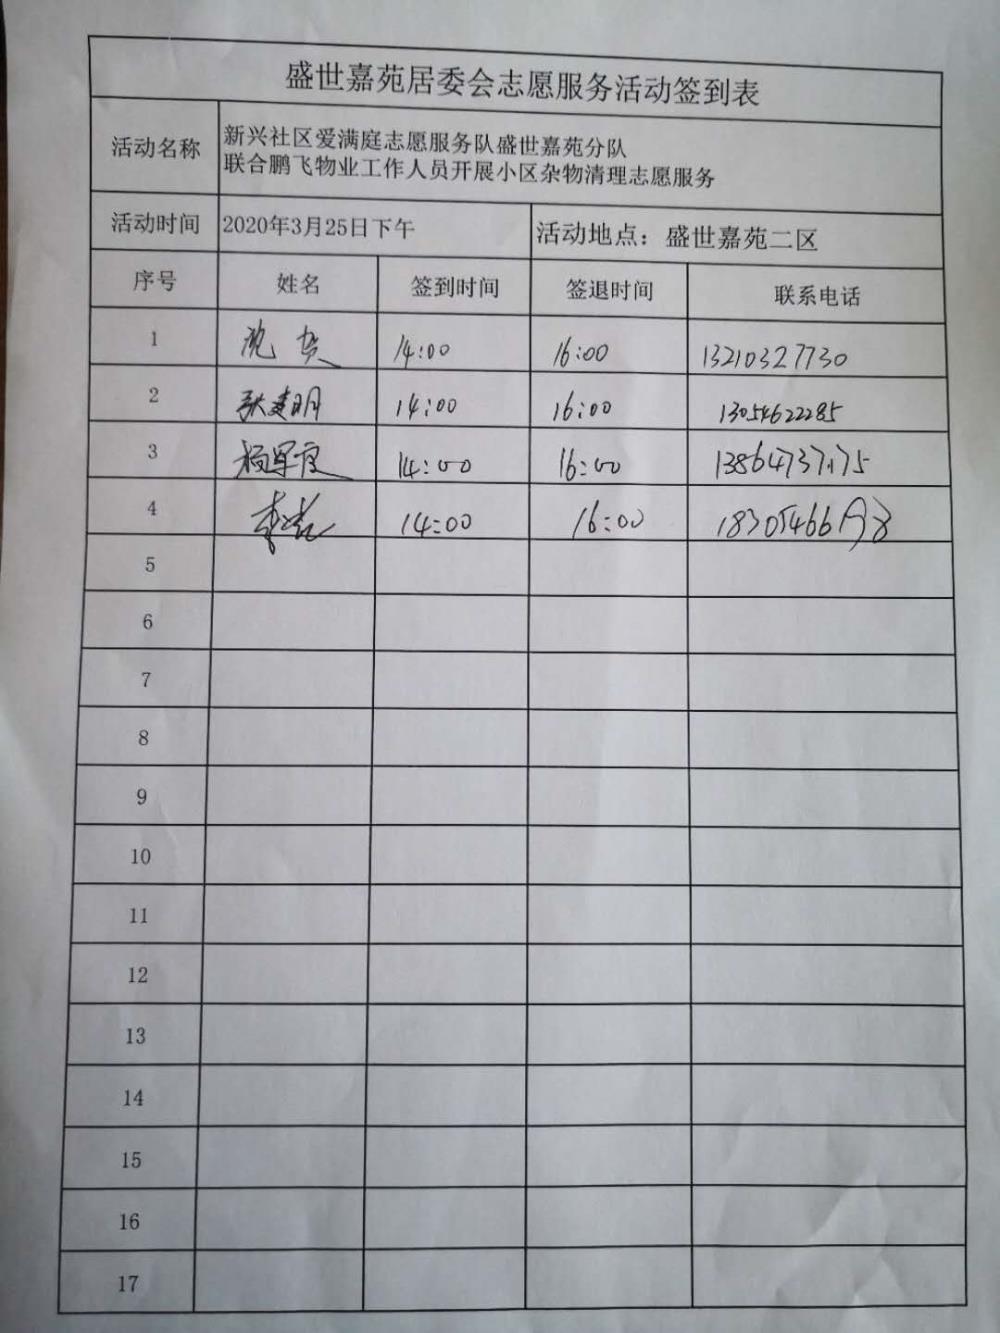 盛世嘉苑居委会志愿服务活动签到表
活动名称 新兴社区爱满庭志愿服务队盛世嘉苑分队
联合鹏飞物业工作人员开展小区杂物清理志愿服务
活动时间 2020年3月25日下午 活动地点：盛世嘉苑二区
序号 姓名 签到时间 签退时间 联系电话
1 14:00 16:00 13210327730
2 张建明 14:00 16:00 13054622285
3 14:00 16:00
4 14:00 16:00
5
6
7
8
9
10
11
12
13
14
15
16
17